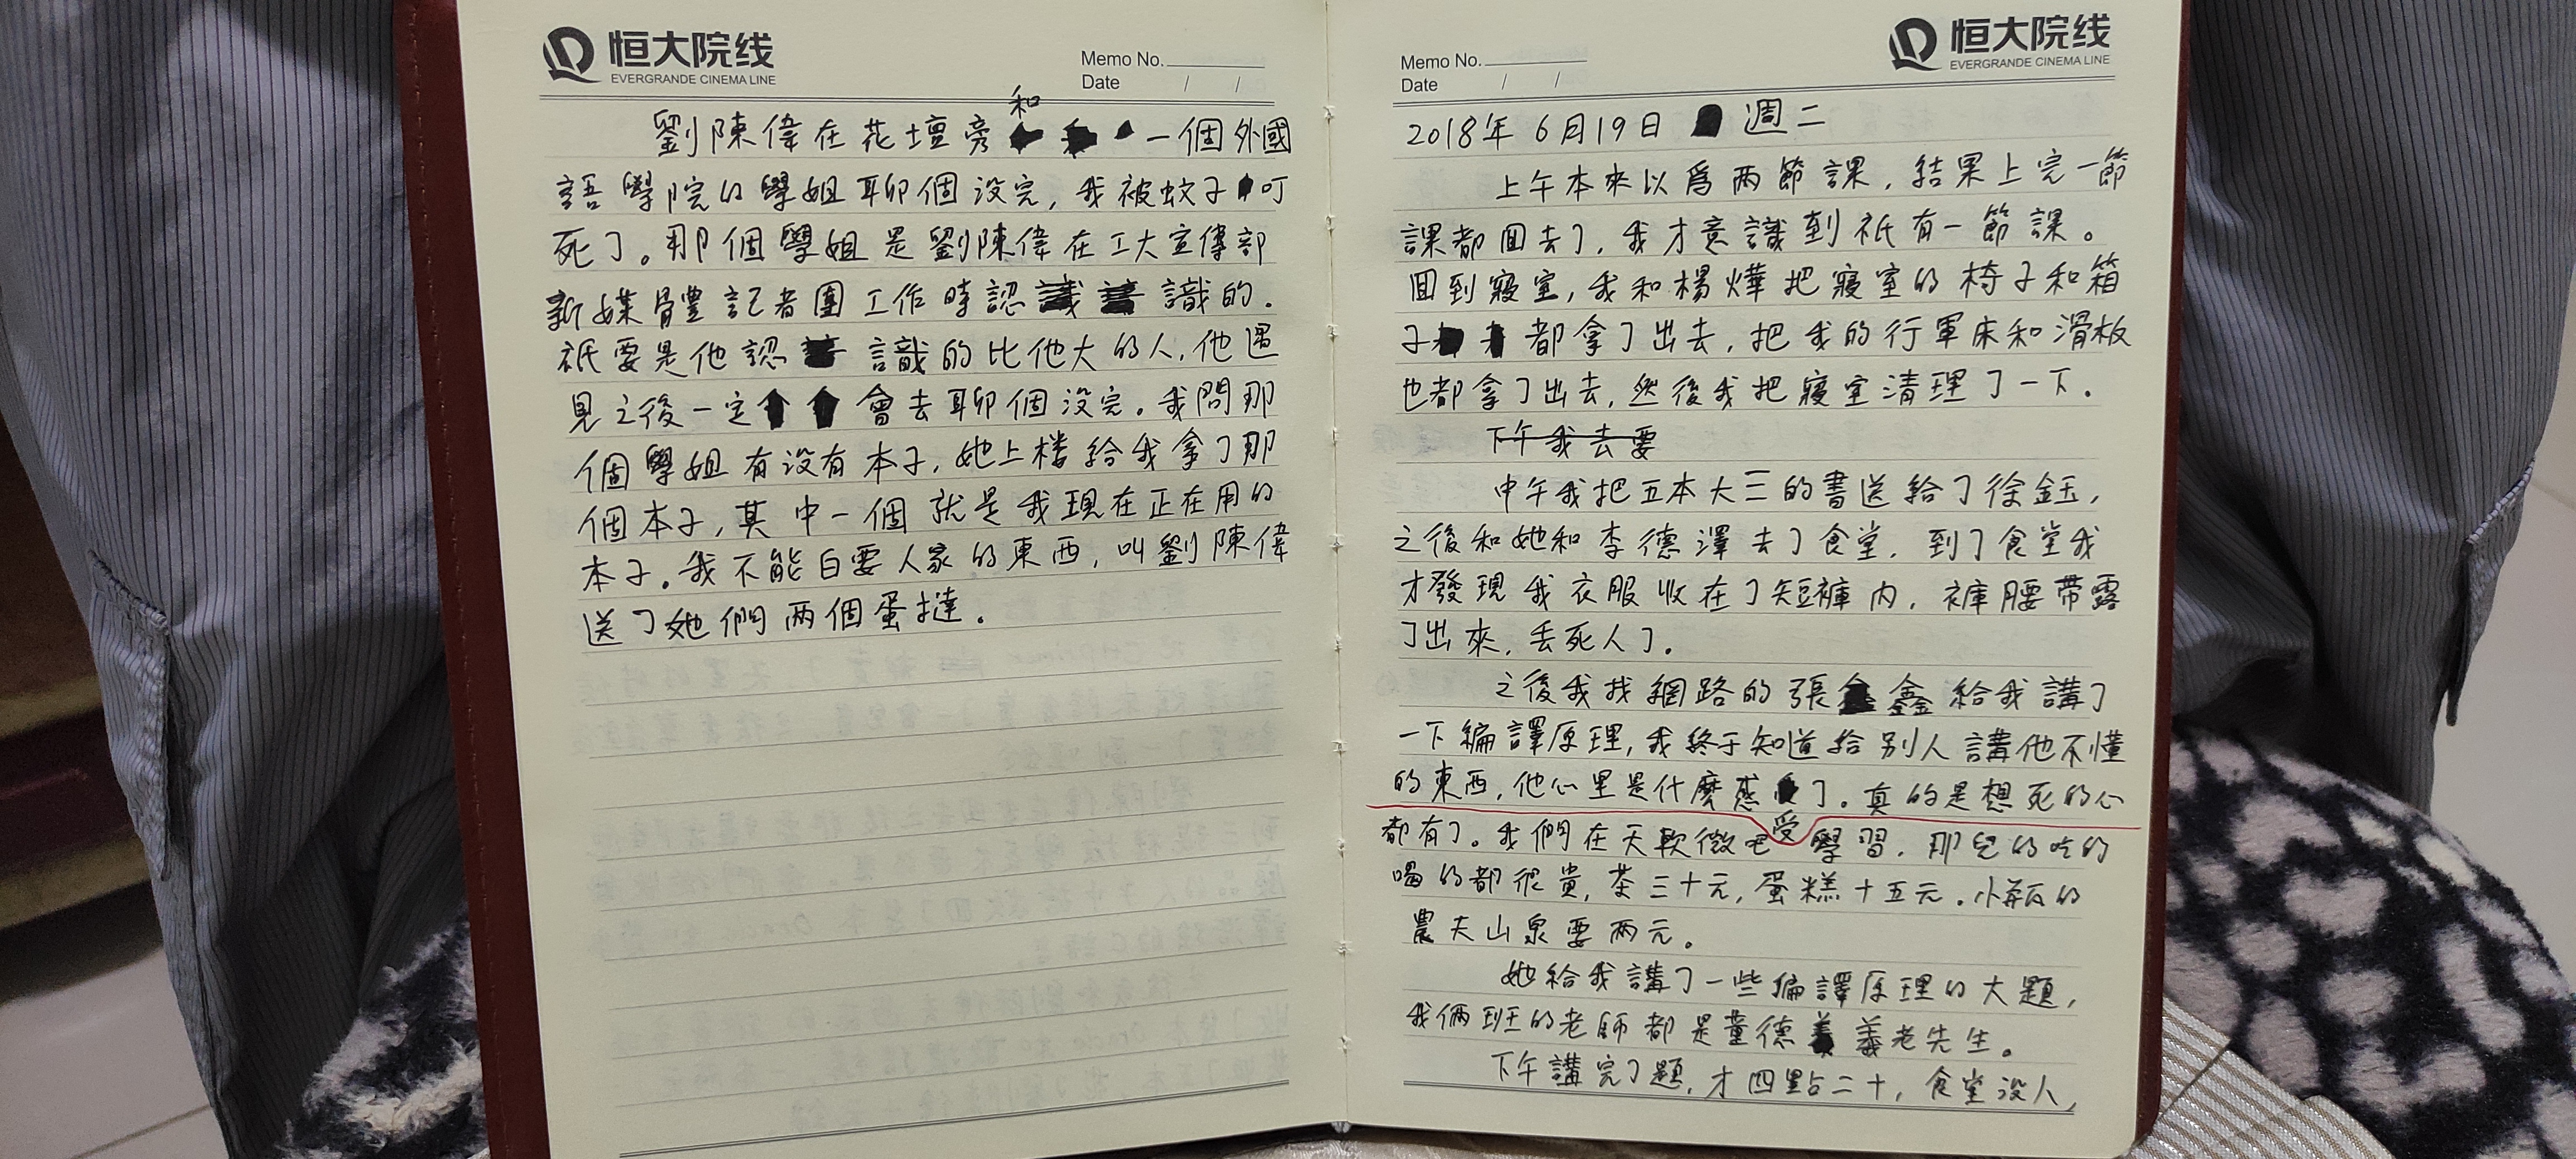 恒大院线
EVERGRANDE CINEMA LINE
Memo No.
Date / /
和
劉陳偉在花壇旁一個外國
語學院的學姐聊個没完，我被蚊子叮
死了。那個學姐是劉陳偉在工大宣傳部
新媒體記者團工作時認識的。
祇要是他認識的比他大的人，他遇
見之後一定會去聊個没完。我問那
個學姐有没有本子，她上楼給我拿了那
個本子，其中一個就是我現在正在用的
本子。我不能白要人家的東西，叫劉陳偉
送了她們两個蛋撻。
恒大院线
EVERGRANDE CINEMA LINE
Memo No.
Date / /
2018年6月19日 週二
上午本來以爲两節課，結果上完一節
課都回去了，我才意識到祇有一節課。
回到寢室，我和楊燁把寢室的椅子和箱
子都拿了出去，把我的行軍床和滑板
也都拿了出去，然後我把寢室清理了一下。
下午我去要
中午我把五本大三的書送給了徐鈺，
之後和她和李德澤去了食堂，到了食堂我
才發現我衣服收在了短褲内，褲腰带露
了出來，丢死人了。
之後我找網路的張鑫給我講了
一下編譯原理，我終于知道給别人講他不懂
的東西，他心里是什麽感了。真的是想死的心
受
都有了。我們在天軟微吧學習，那兒的吃的
喝的都很貴，茶三十元，蛋糕十五元。小瓶的
農夫山泉要两元。
她給我講了一些編譯原理的大題，
我俩班的老師都是董德義老先生。
下午講完了題，才四點二十，食堂没人，